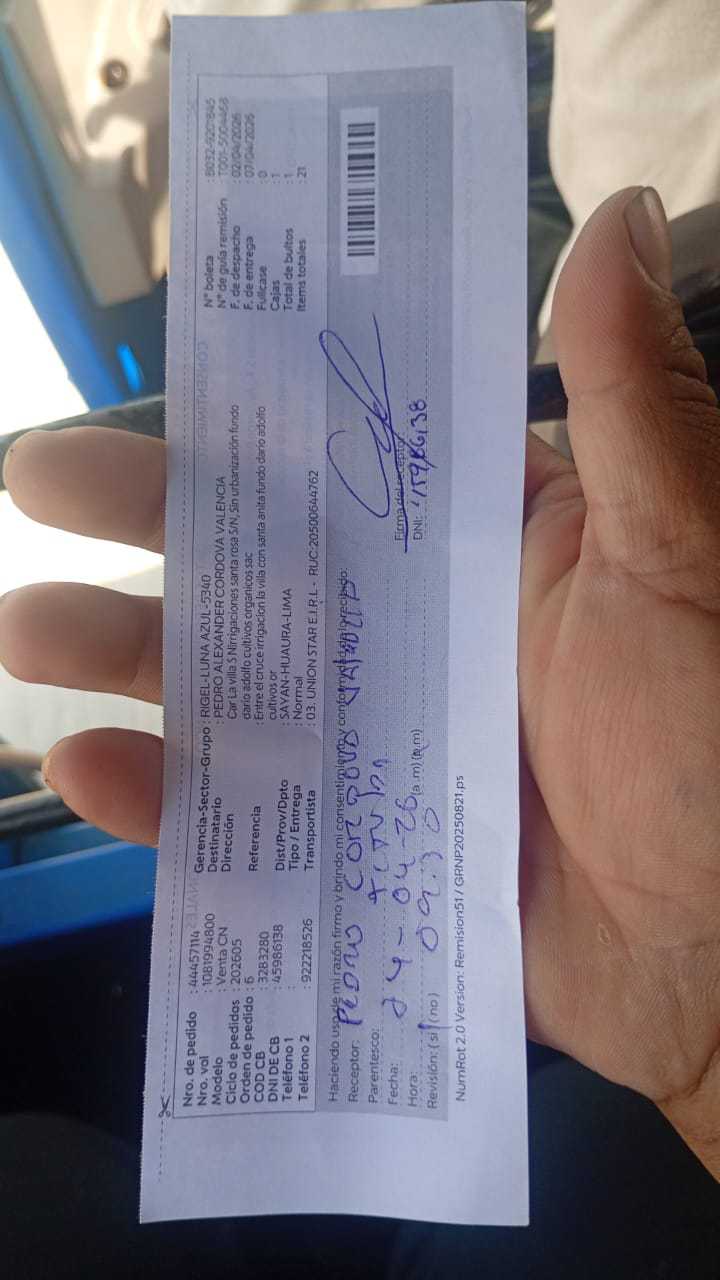 Nro. de pedido : 44457114
Nro. vol : 1081994800
Modelo : Venta CN
Ciclo de pedidos : 202605
Orden de pedido : 6
COD CB : 3283280
DNI DE CB : 45986138
Teléfono 1 :
Teléfono 2 : 922218526
Gerencia-Sector-Grupo : RIGEL-LUNA AZUL-5340
Destinatario : PEDRO ALEXANDER CORDOVA VALENCIA
Dirección : Car La villa S Nirrigaciones santa rosa S/N,Sin urbanización fundo
dario adolfo cultivos organicos sac
Referencia : Entre el cruce irrigacion la villa con santa anita fundo dario adolfo
cultivos or
Dist/Prov/Dpto : SAYAN-HUAURA-LIMA
Tipo / Entrega : Normal
Transportista : 03. UNION STAR E.I.R.L - RUC:20500644762
N° boleta : B032-9207845
N° de guía remisión : T001-5004468
F. de despacho : 02/04/2026
F. de entrega : 07/04/2026
Fullcase : 0
Cajas : 1
Total de bultos : 1
Items totales : 21
Haciendo uso de mi razón firmo y brindo mi consentimiento y conformidad de lo recibido:
Receptor: PEDRO CORDOVA
Parentesco:
Fecha: 04-26
Hora: 09:30 (a.m) (p.m)
Revisión: (si) (no)
Firma del receptor
DNI: 45986138
NumRot 2.0 Version: Remision51 / GRNP20250821.ps